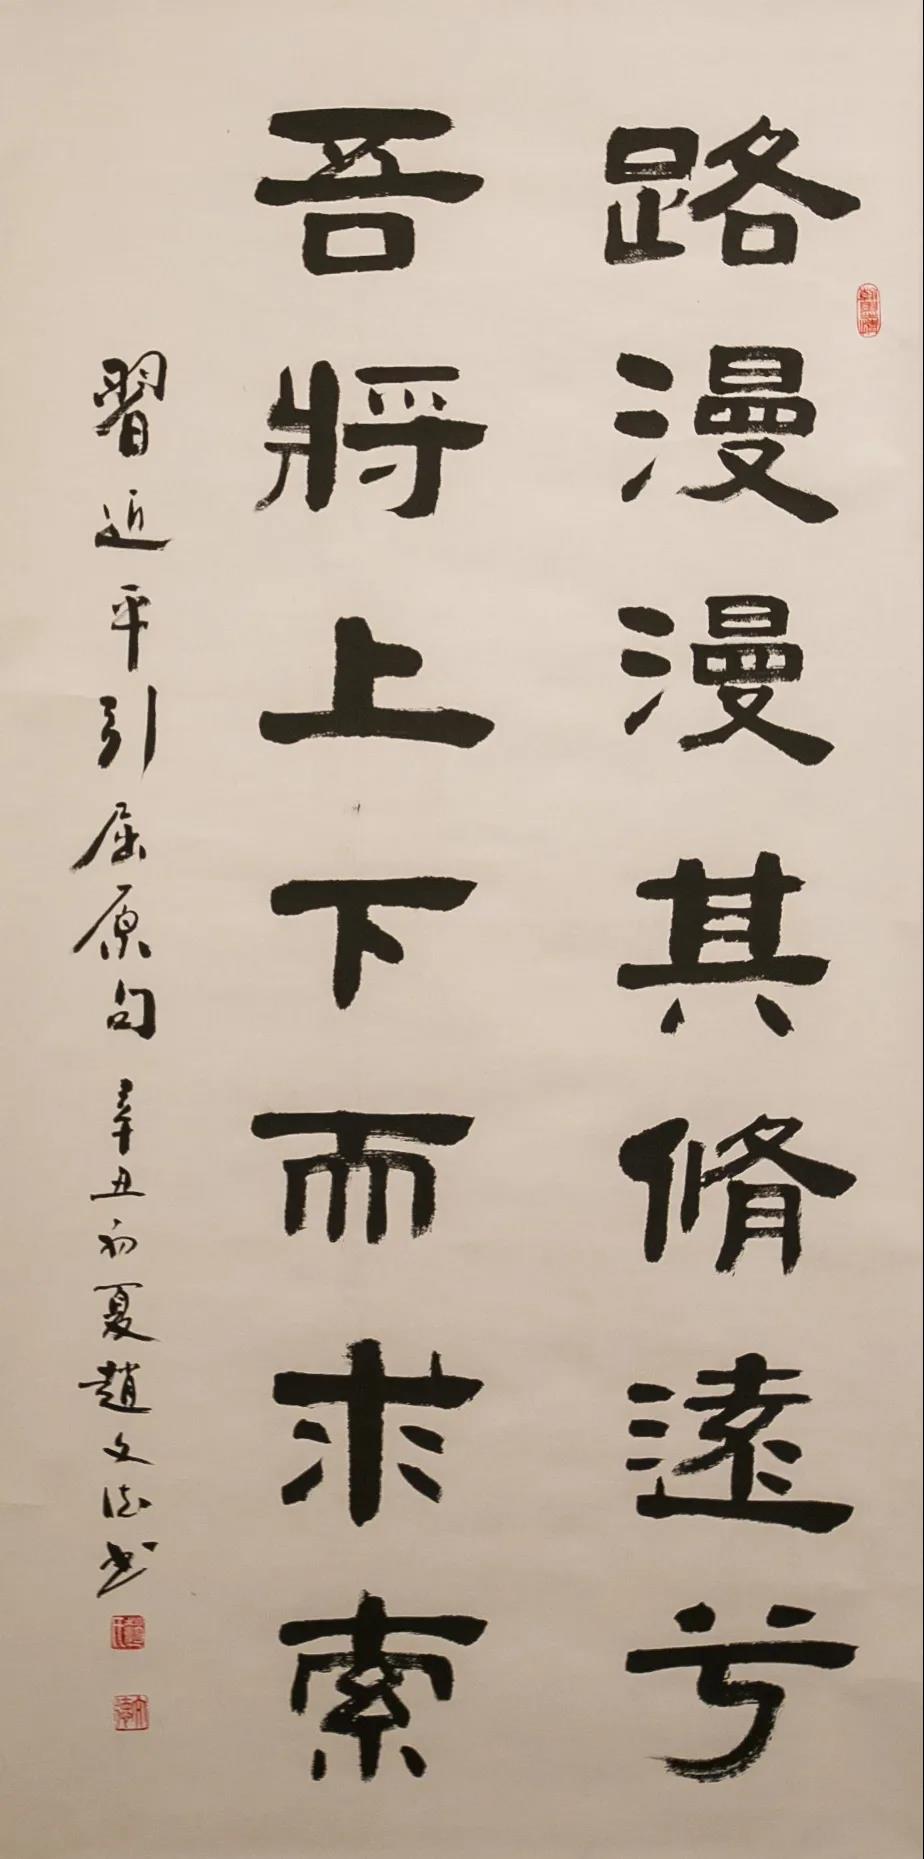 路漫漫其脩遠兮
吾將上下而求索
習近平引屈原句 辛丑初夏趙文德书